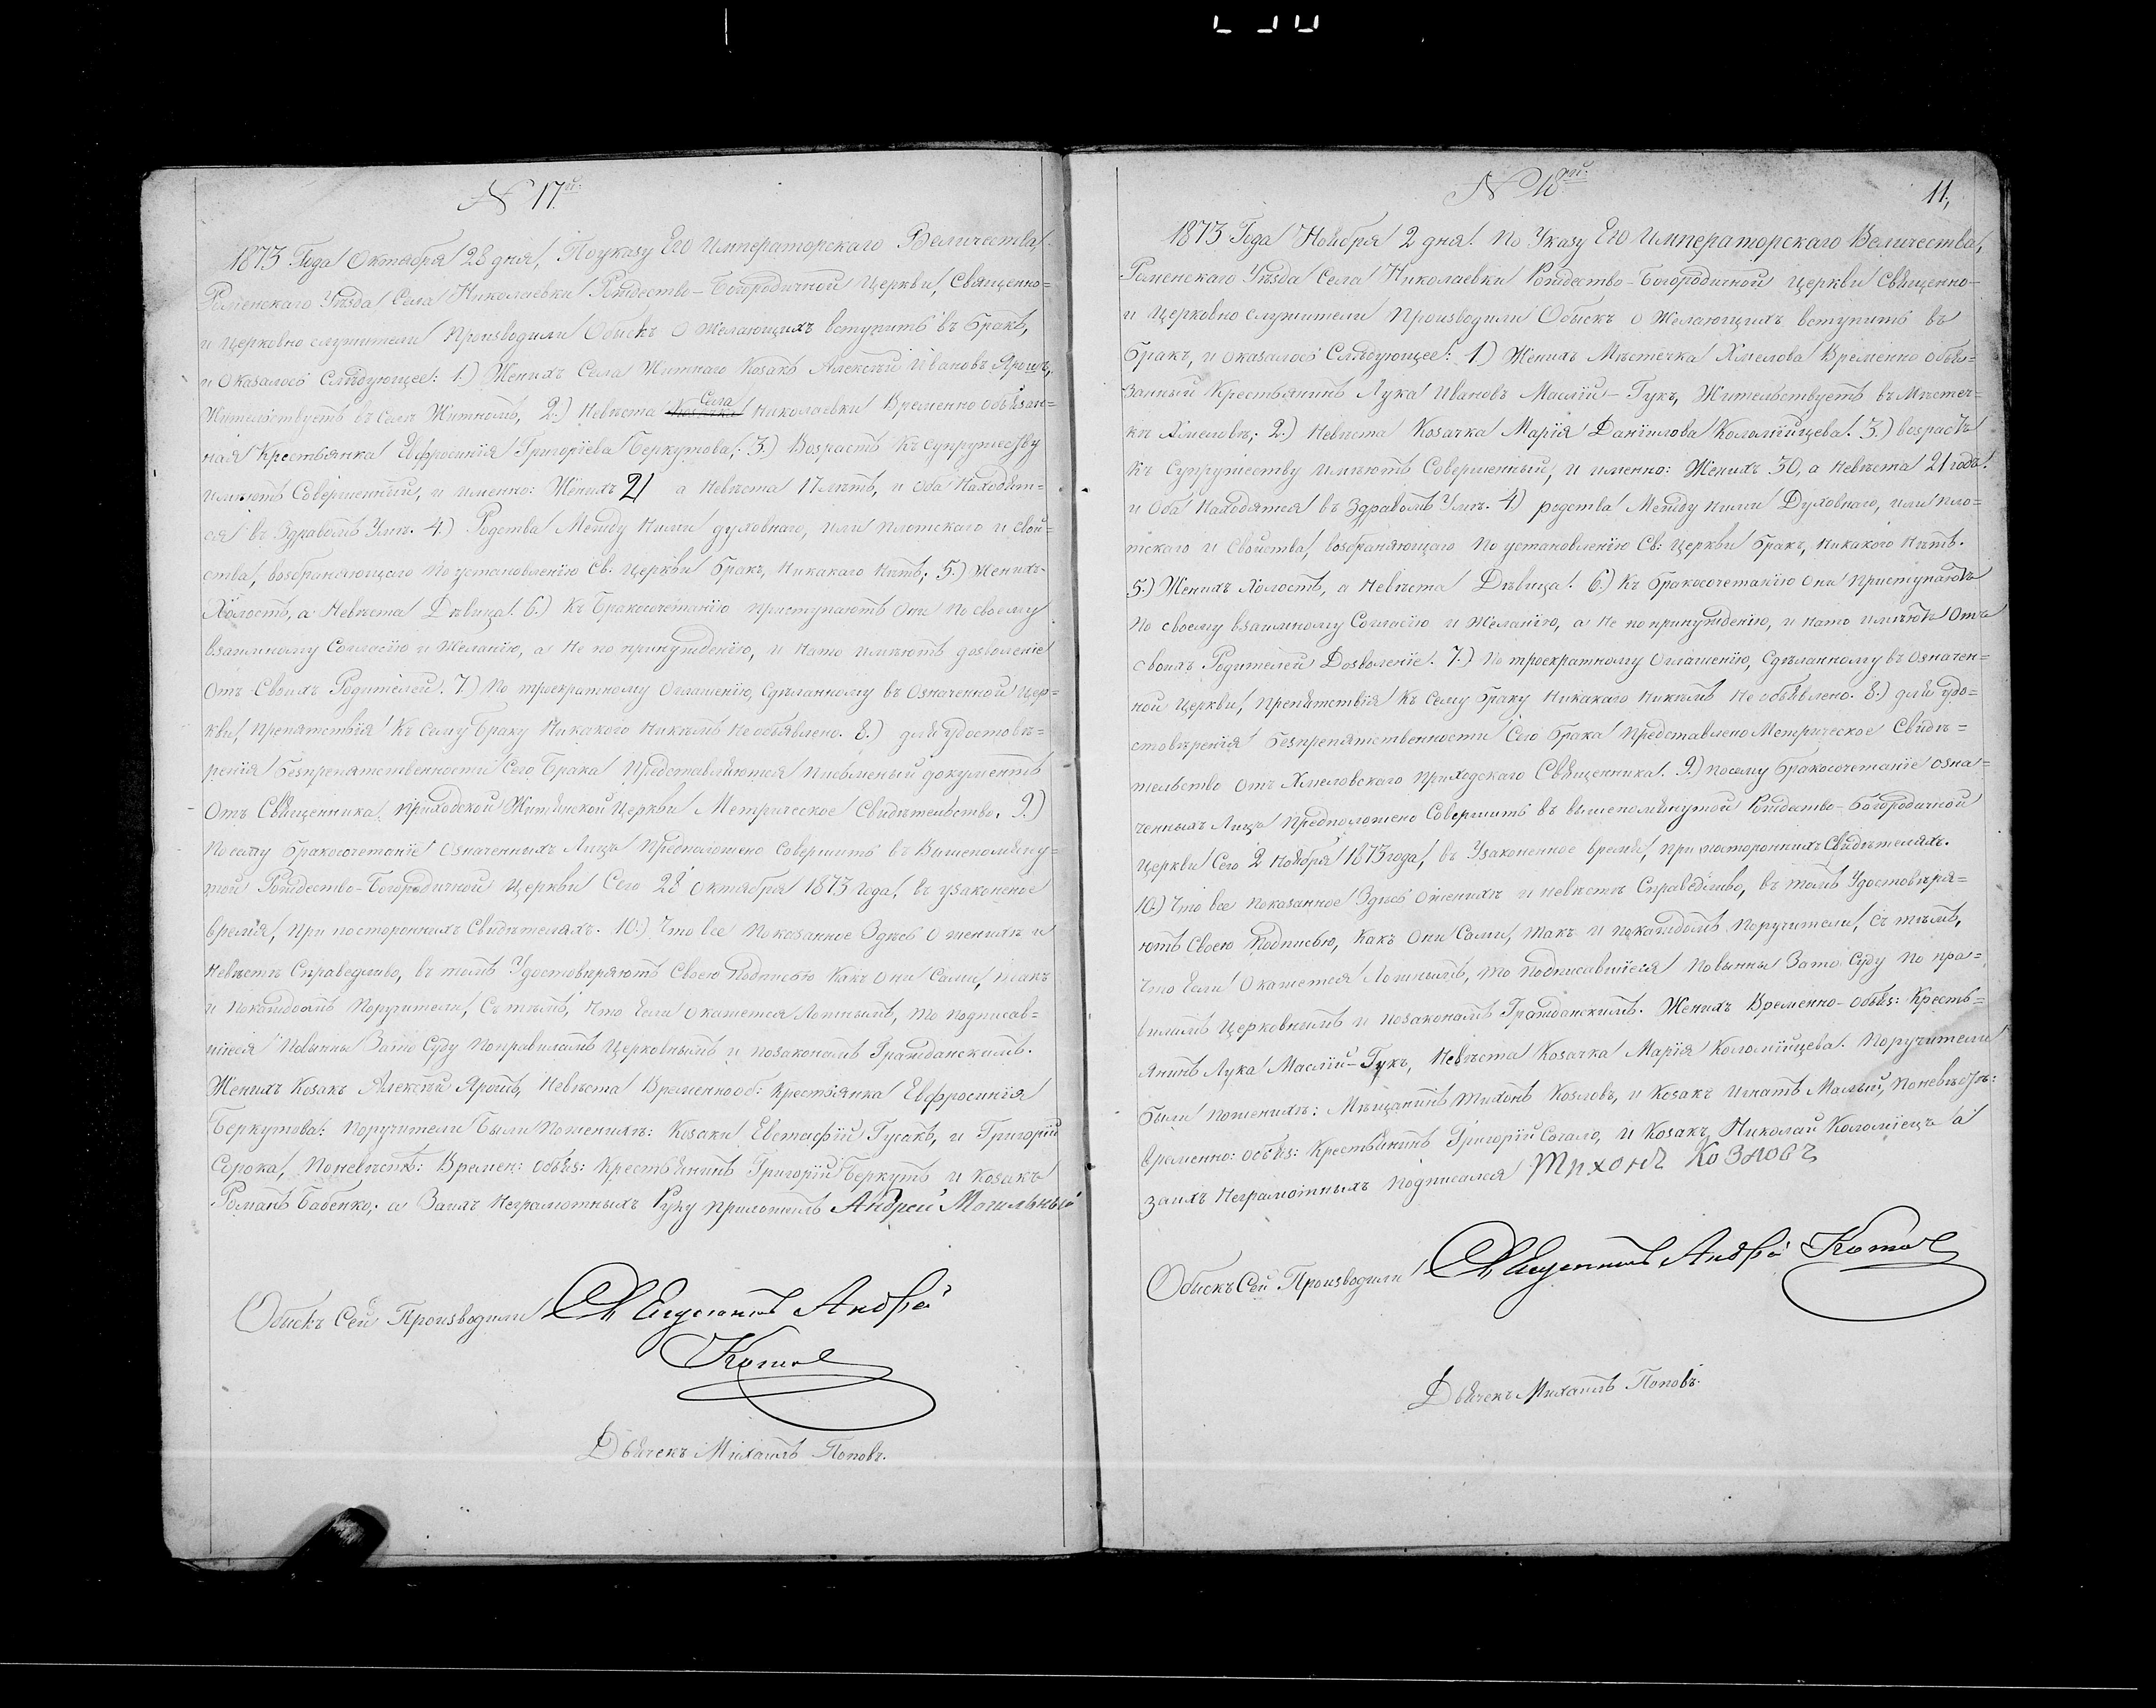 N 17й.
1873 Года Октября 28 дня, По указу Его Императорскаго Величества,
Роменскаго Уѣзда Села Николаевки Рождество-Богородичной Церкви, Священно=
и Церковно служители Производили Обыскъ о желающихъ вступить въ бракъ,
и Оказалось Слѣдующее: 1.) Женихъ Села Житнаго Козакъ Алексѣй Ивановъ Ярошъ,
Жительствуетъ въ Селѣ Житномъ, 2.) Невѣста Села Николаевки Временно обязан=
ная Крестьянка Евфросинія Григоріева Беркутова; 3.) Возрастъ Къ супружеству
имѣютъ Совершенный, и именно: Женихъ 21 а Невѣста 17 лѣтъ, и оба Находят=
ся въ Здравомъ Умѣ. 4.) Родства Между Ними духовнаго, или плотскаго и свой=
ства, возбраняющаго по установленію Св. Церкви бракъ, Никакаго Нѣтъ; 5.) Женихъ-
Холостъ, а Невѣста Дѣвица. 6.) Къ Бракосочетанію приступаютъ Они По своему
взаимному Согласію и Желанію, а Не по принужденію, и Нато имѣютъ дозволеніе
Отъ Своихъ Родителей. 7.) По троекратному Оглашенію, Сдѣланному въ Означенной Цер=
кви, Препятствія Къ Сему Браку Никакого Никѣмъ Не объявлено. 8.) для Удостовѣ=
ренія безпрепятственности Сего Брака Представляются Писменый документъ
Отъ Священника Приходской Житнянской Церкви Метрическое Свидѣтельство. 9.)
По сему бракосочетаніе Означенныхъ Лицъ Предположено Совершить въ Вышепомяну=
той Рождество-Богородичной Церкви Сего 28 Октября 1873 года, въ узаконеное
время, при постороннихъ Свидѣтеляхъ. 10.) Что все Показанное Здѣсь О женихѣ и
Невѣстѣ Справедливо, въ томъ Удостовѣряютъ Своею Подписью Какъ Они Сами, такъ
и Покаждомъ Поручители, Съ тѣмъ, Что Если Окажется Ложнымъ, то подписав=
шіеся Повынны Зато Суду Поправиламъ Церковнымъ и Позаконамъ Гражданскимъ.
Женихъ Козакъ Алексѣй Ярошъ, Невѣста Временно об: Крестіянка Евфросинія
Беркутова: Поручители Были Поженихѣ: Козаки Евстафій Гусакъ, и Григорій
Сорока, Поневѣстѣ: Времен: обяз: Крестьянинъ Григорій Беркутъ и Козакъ
Романъ Бабенко; а Заихъ Неграмотныхъ Руку приложилъ Андрей Могильный
Обыскъ Сей Производили Священникъ Андрей
Котов
Дьячекъ Михаилъ Поповъ.
N 18й.
11,
1873 Года Ноября 2 дня. По Указу Его Императорскаго Величества,
Роменскаго Уѣзда Села Николаевки Рождество-Богородичной Церкви Священно-
и Церковно служители Производили Обыскъ о Желающихъ вступить въ
бракъ, и Оказалось Слѣдующее: 1.) Женихъ Мѣстечка Хмелова Временно обя=
занный Крестьянинъ Лука Ивановъ Маслій-Гукъ, Жительствуетъ въ Мѣстеч=
кѣ Хмеловѣ; 2.) Невѣста Козачка Марія Даніилова Коломійцева. 3.) Возрастъ
Къ Супружеству имѣютъ Совершенный, и именно: Женихъ 30, а Невѣста 21 года.
и Оба Находятся въ Здравомъ Умѣ. 4.) родства Между ними Духовнаго, или пло=
тскаго и Свойства, возбраняющаго По установленію Св: Церкви бракъ, никакого Нѣтъ.
5.) Женихъ Холостъ, а Невѣста Дѣвица. 6.) Къ бракосочетанію Они Приступаютъ
По своему взаимному Согласію и Желанію, а Не по принужденію, и нато имѣютъ Отъ
своихъ Родителей Дозволеніе. 7.) По троекратному Оглашенію, Сдѣланному въ Означен=
ной Церкви, Препятствія Къ Сему браку Никакаго Никѣмъ Не объявлено. 8.) для Удо=
стовѣренія безпрепятственности Сего брака Представлено Метрическое Свидѣ=
тельство Отъ Хмеловскаго Приходскаго Священника. 9.) По сему бракосочетаніе Озна=
ченныхъ Лицъ Предположено Совершить въ вышепомянутой Рождество-Богородичной
Церкви Сего 2 Ноября 1873 года, въ Узаконенное время, при постороннихъ Свидѣтеляхъ.
10.) Что все показанное Здѣсь Оженихѣ и невѣстѣ Справедливо, въ томъ Удостовѣря=
ютъ Своею Подписью, Какъ Они Сами, такъ и покаждомъ Поручители, Съ тѣмъ,
Что Если Окажется Ложнымъ, то Подписавшіеся Повынны Зато Суду По пра=
виламъ Церковнымъ и Позаконамъ Гражданскимъ. Женихъ Временно-обяз: Кресть=
янинъ Лука Маслій-Гукъ, Невѣста Козачка Марія Коломійцева. Поручители
были Поженихѣ: Мѣщанинъ Тихонъ Козловъ, и Козакъ Игнатъ Малый, Поневѣстѣ:
Временно: обяз: Крестьянинъ Григорій Согало, и Козакъ Николай Коломіецъ а
заихъ Неграмотныхъ Подписался Тихонъ Козловъ
Обыскъ Сей Производили Священникъ Андрей Котов
Дьячекъ Михаилъ Поповъ.